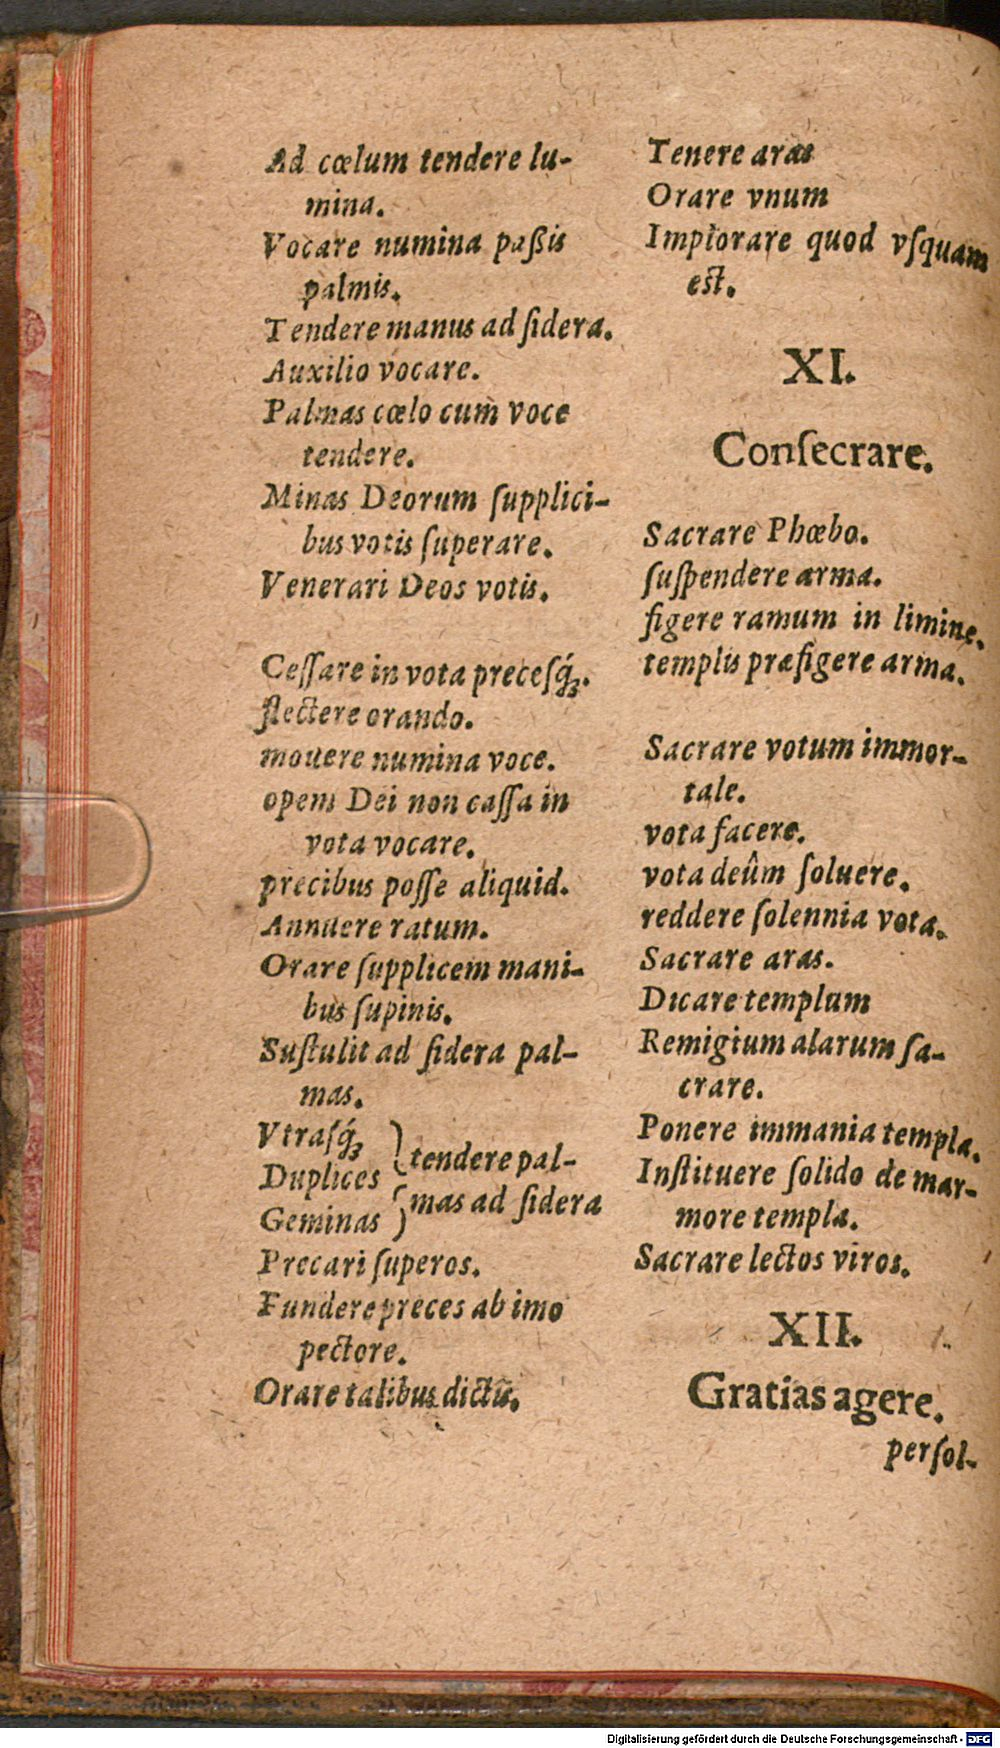 Ad cœlum tendere lu-
mina.
Vocare numina paßis
palmis.
Tendere manus ad ſidera.
Auxilio vocare.
Palmas cœlo cum voce
tendere.
Minas Deorum ſupplici-
bus votis ſuperare.
Venerari Deos votis.
Ceſſare in vota preceſq́;.
flectere orando.
mouere numina voce.
opem Dei non caſſa in
vota vocare.
precibus poſſe aliquid.
Annuere ratum.
Orare ſupplicem mani-
bus ſupinis.
Suſtulit ad ſidera pal-
mas.
Vtraſq́;
Duplices
Geminas
tendere pal-
mas ad ſidera
Precari ſuperos.
Fundere preces ab imo
pectore.
Orare talibus dictis.
Tenere aras
Orare vnum
Implorare quod vſquam
eſt.
XI.
Conſecrare.
Sacrare Phœbo.
ſuſpendere arma.
figere ramum in limine.
templis præfigere arma.
Sacrare votum immor-
tale.
vota facere.
vota deûm ſoluere.
reddere ſolennia vota.
Sacrare aras.
Dicare templum
Remigium alarum ſa-
crare.
Ponere immania templa.
Inſtituere ſolido de mar-
more templa.
Sacrare lectos viros.
XII.
Gratias agere.
perſol-
Digitalisierung gefördert durch die Deutsche Forschungsgemeinschaft - DFG